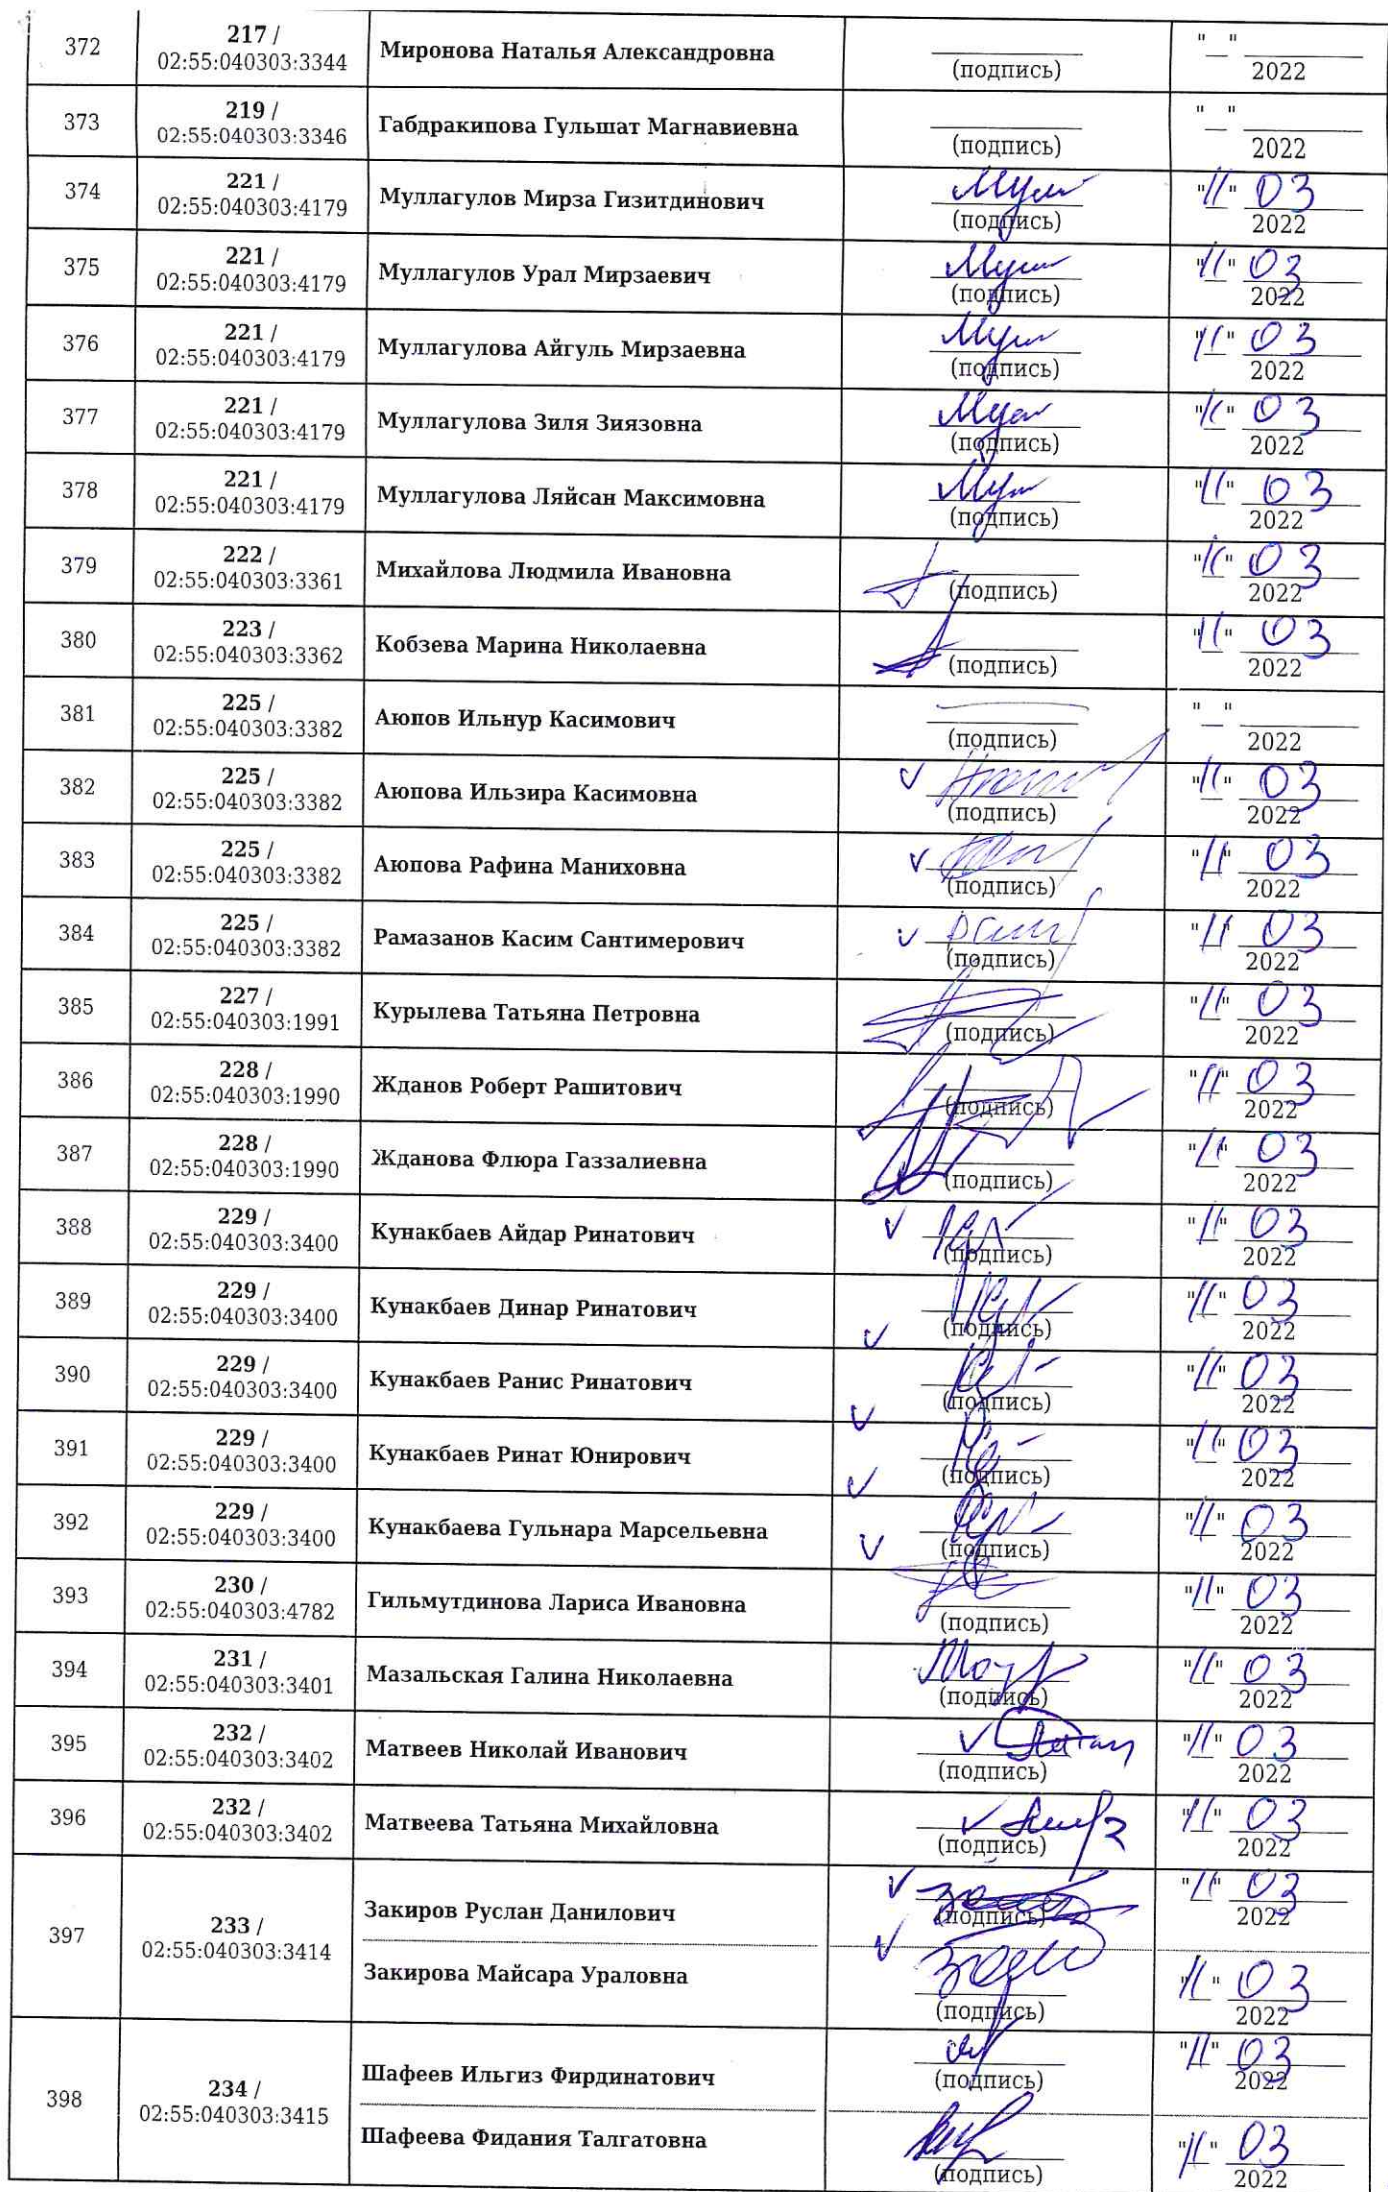 372
217 /
02:55:040303:3344
Миронова Наталья Александровна
(подпись)
"__" 2022
373
219 /
02:55:040303:3346
Габдракипова Гульшат Магнавиевна
(подпись)
"__" 2022
374
221 /
02:55:040303:4179
Муллагулов Мирза Гизитдинович
(подпись)
"11" 03
2022
375
221 /
02:55:040303:4179
Муллагулов Урал Мирзаевич
(подпись)
"11" 03
2022
376
221 /
02:55:040303:4179
Муллагулова Айгуль Мирзаевна
(подпись)
"11" 03
2022
377
221 /
02:55:040303:4179
Муллагулова Зиля Зиязовна
(подпись)
"11" 03
2022
378
221 /
02:55:040303:4179
Муллагулова Ляйсан Максимовна
(подпись)
"11" 03
2022
379
222 /
02:55:040303:3361
Михайлова Людмила Ивановна
(подпись)
"11" 03
2022
380
223 /
02:55:040303:3362
Кобзева Марина Николаевна
(подпись)
"11" 03
2022
381
225 /
02:55:040303:3382
Аюпов Ильнур Касимович
(подпись)
"__" 2022
382
225 /
02:55:040303:3382
Аюпова Ильзира Касимовна
(подпись)
"11" 03
2022
383
225 /
02:55:040303:3382
Аюпова Рафина Маниховна
(подпись)
"11" 03
2022
384
225 /
02:55:040303:3382
Рамазанов Касим Сантимерович
(подпись)
"11" 03
2022
385
227 /
02:55:040303:1991
Курылева Татьяна Петровна
(подпись)
"11" 03
2022
386
228 /
02:55:040303:1990
Жданов Роберт Рашитович
(подпись)
"11" 03
2022
387
228 /
02:55:040303:1990
Жданова Флюра Газзалиевна
(подпись)
"11" 03
2022
388
229 /
02:55:040303:3400
Кунакбаев Айдар Ринатович
(подпись)
"11" 03
2022
389
229 /
02:55:040303:3400
Кунакбаев Динар Ринатович
(подпись)
"11" 03
2022
390
229 /
02:55:040303:3400
Кунакбаев Ранис Ринатович
(подпись)
"11" 03
2022
391
229 /
02:55:040303:3400
Кунакбаев Ринат Юнирович
(подпись)
"11" 03
2022
392
229 /
02:55:040303:3400
Кунакбаева Гульнара Марсельевна
(подпись)
"11" 03
2022
393
230 /
02:55:040303:4782
Гильмутдинова Лариса Ивановна
(подпись)
"11" 03
2022
394
231 /
02:55:040303:3401
Мазальская Галина Николаевна
(подпись)
"11" 03
2022
395
232 /
02:55:040303:3402
Матвеев Николай Иванович
(подпись)
"11" 03
2022
396
232 /
02:55:040303:3402
Матвеева Татьяна Михайловна
(подпись)
"11" 03
2022
397
233 /
02:55:040303:3414
Закиров Руслан Данилович
(подпись)
"11" 03
2022
Закирова Майсара Ураловна
(подпись)
"11" 03
2022
398
234 /
02:55:040303:3415
Шафеев Ильгиз Фирдинатович
(подпись)
"11" 03
2022
Шафеева Фидания Талгатовна
(подпись)
"11" 03
2022